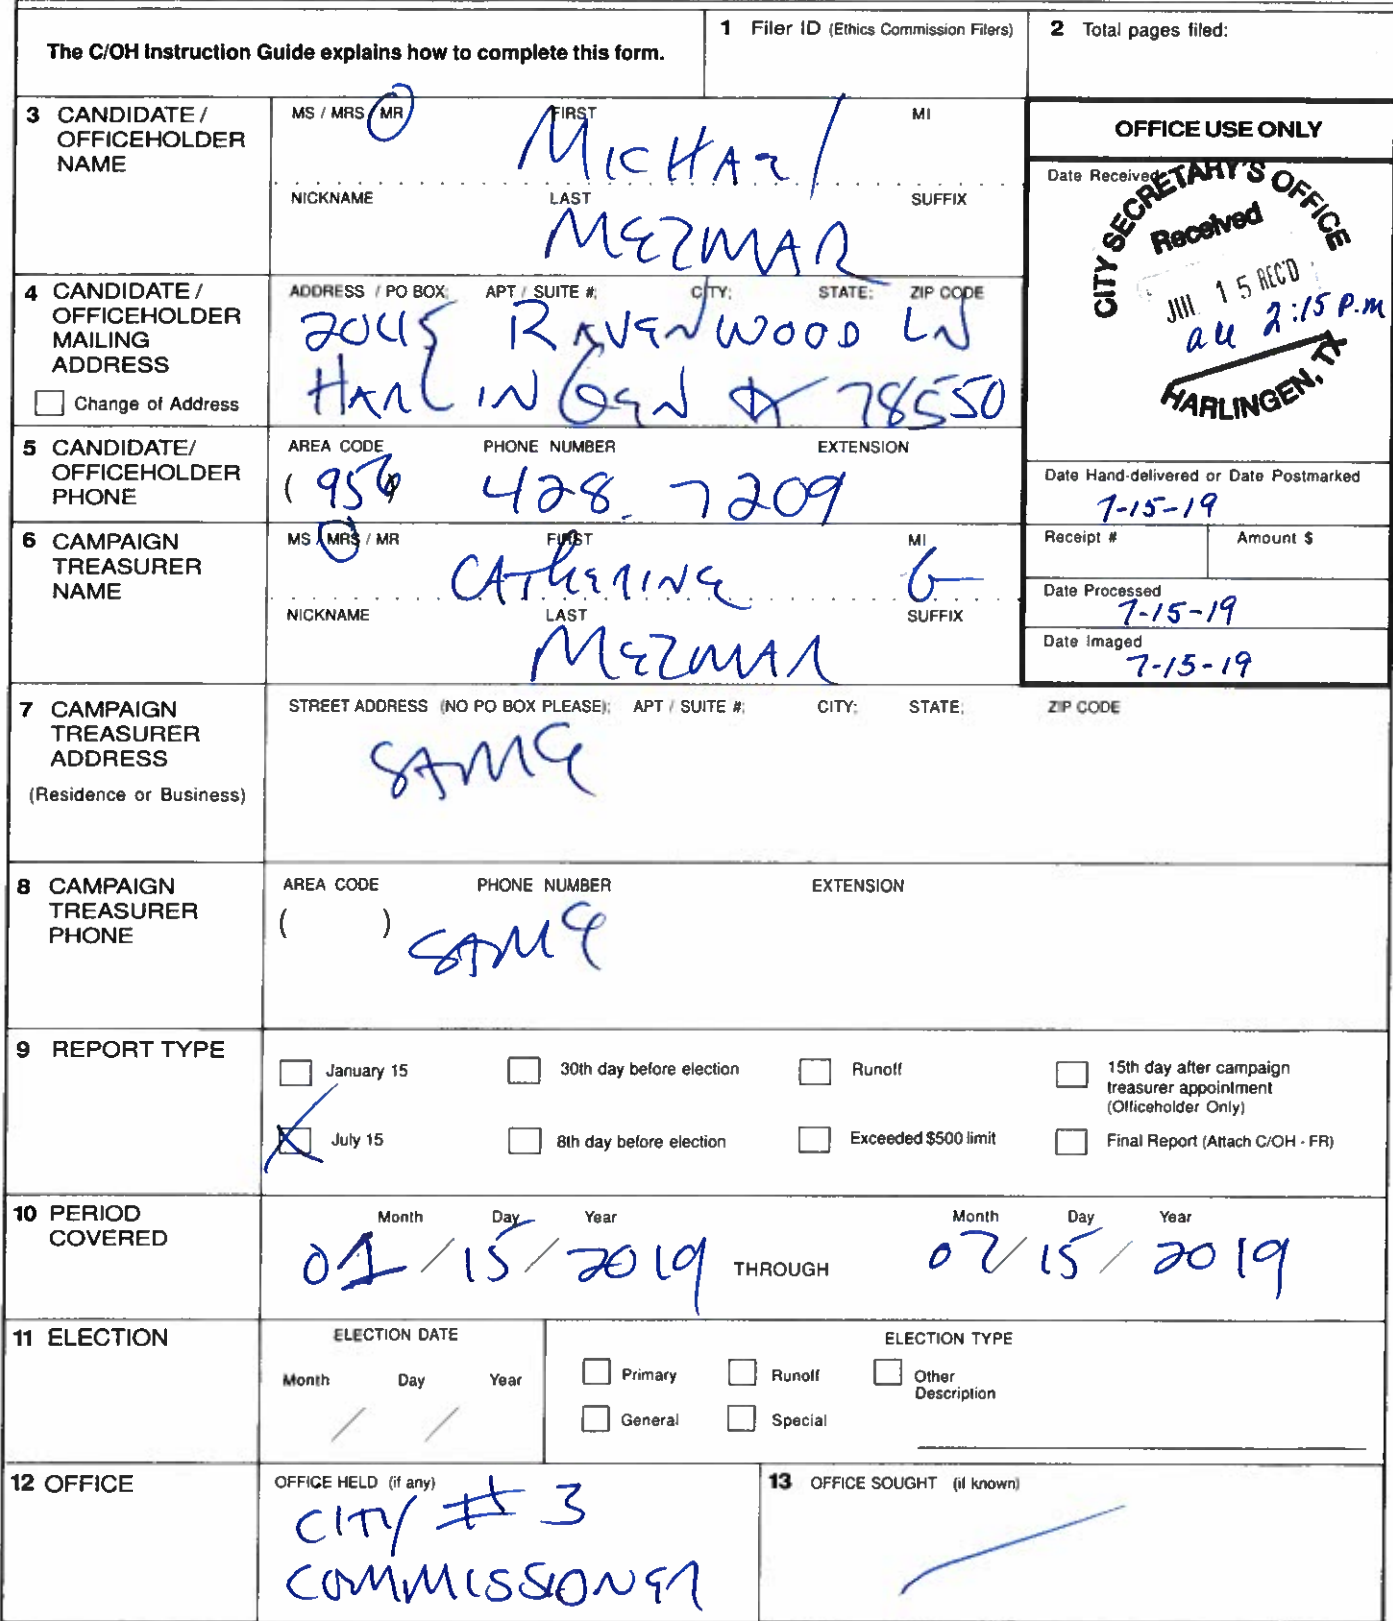 The C/OH Instruction Guide explains how to complete this form.
1 Filer ID (Ethics Commission Filers)
2 Total pages filed:
3 CANDIDATE / OFFICEHOLDER NAME
MS / MRS / MR FIRST MI
MICHAEL
NICKNAME LAST SUFFIX
MEZMAR
OFFICE USE ONLY
Date Received
CITY SECRETARY'S OFFICE
Received
JUL 15 REC'D
au 2:15 P.M
HARLINGEN, TX
4 CANDIDATE / OFFICEHOLDER MAILING ADDRESS
Change of Address
ADDRESS / PO BOX; APT / SUITE #; CITY; STATE; ZIP CODE
2045 RAVENWOOD LN
HARLINGEN TX 78550
5 CANDIDATE/ OFFICEHOLDER PHONE
AREA CODE PHONE NUMBER EXTENSION
(956) 428 7209
Date Hand-delivered or Date Postmarked
7-15-19
6 CAMPAIGN TREASURER NAME
MS / MRS / MR FIRST MI
CATHERINE G
NICKNAME LAST SUFFIX
MEZMAR
Receipt # Amount $
Date Processed
7-15-19
Date Imaged
7-15-19
7 CAMPAIGN TREASURER ADDRESS
(Residence or Business)
STREET ADDRESS (NO PO BOX PLEASE); APT / SUITE #; CITY; STATE; ZIP CODE
SAME
8 CAMPAIGN TREASURER PHONE
AREA CODE PHONE NUMBER EXTENSION
( ) SAME
9 REPORT TYPE
January 15 30th day before election Runoff 15th day after campaign treasurer appointment (Officeholder Only)
July 15 8th day before election Exceeded $500 limit Final Report (Attach C/OH - FR)
10 PERIOD COVERED
Month Day Year Month Day Year
01 / 15 / 2019 THROUGH 07 / 15 / 2019
11 ELECTION
ELECTION DATE
Month Day Year
/ /
ELECTION TYPE
Primary Runoff Other Description
General Special
12 OFFICE
OFFICE HELD (if any)
CITY # 3
COMMISSIONER
13 OFFICE SOUGHT (if known)